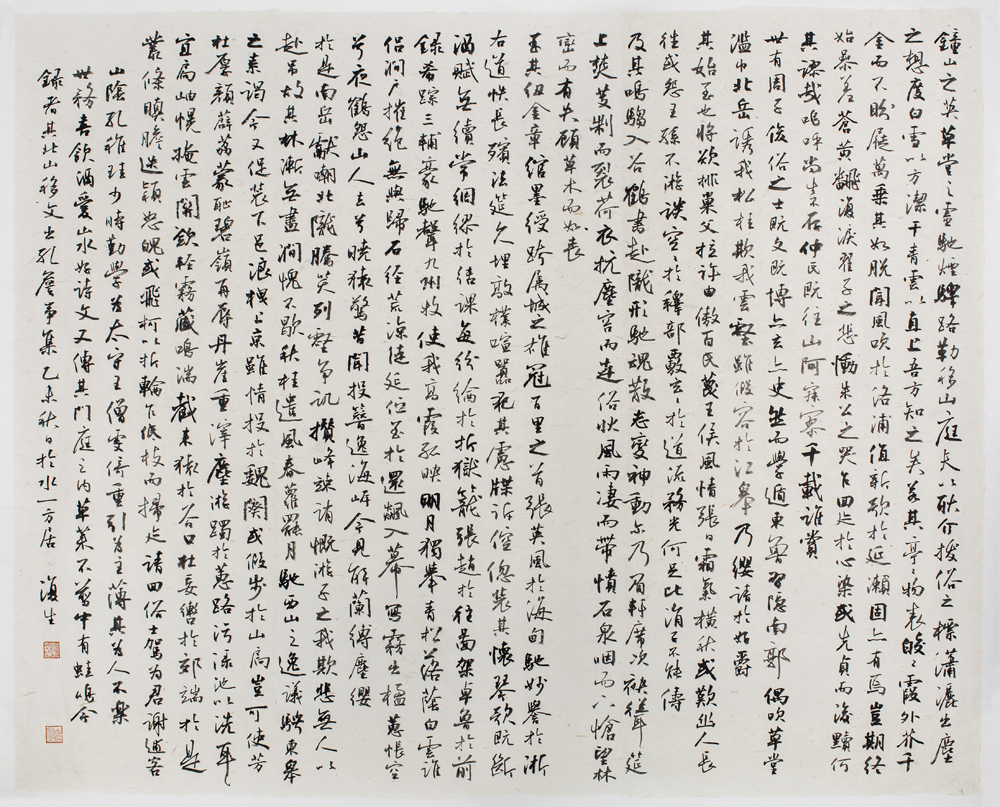 鐘山之英草堂之靈馳煙驛路勒移山庭夫以耿介拔俗之標瀟灑出塵
之想度白雪以方潔干青雲以直上吾方知之矣若其亭亭物表皎皎霞外芥千
金而不盼屣萬乘其如脫聞風吹於洛浦值薪歌於延瀨固亦有焉豈期終
始參差蒼黃翻覆淚翟子之悲慟朱公之哭乍迴跡於心染或先貞而後黷何
其謬哉嗚呼尚生不存仲氏既往山阿寂寥千載誰賞
世有周子俊俗之士既文既博亦玄亦史然而學遁東魯習隱南郭偶吹草堂
濫巾北岳誘我松桂欺我雲壑雖假容於江皋乃纓情於好爵
其始至也將欲排巢父拉許由傲百氏蔑王侯風情張日霜氣橫秋或歎幽人長
往或怨王孫不游談空々於釋部覈玄々於道流務光何足比涓子不能儔
及其鳴騶入谷鶴書赴隴形馳魄散志變神動爾乃眉軒席次袂聳筵
上焚芰製而裂荷衣抗塵容而走俗狀風雨凄而帶憤石泉咽而下愴望林
巒而有失顧草木而如喪
至其紐金章綰墨綬跨屬城之雄冠百里之首張英風於海甸馳妙譽於浙
右道帙長殯法筵久埋敲撲喧囂犯其慮牒訴倥傯裝其懷琴歌既斷
酒賦無續常綢繆於結課每紛綸於折獄籠張趙於往圖架卓魯於前
錄希蹤三輔豪馳聲九州牧使我高霞孤映明月獨舉青松落蔭白雲誰
侶澗戶摧絕無與歸石徑荒涼徒延佇至於還飆入幕寫霧出楹蕙帳空
兮夜鶴怨山人去兮曉猿驚昔聞投簪逸海岸今見解蘭縛塵纓
於是南岳獻嘲北隴騰笑列壑爭譏攢峰竦誚慨游子之我欺悲無人以
赴弔故其林慚無盡澗愧不歇秋桂遣風春蘿罷月馳西山之逸議騁東皋
之素謁今又促裝下邑浪栧上京雖情投於魏闕或假步於山扃豈可使芳
杜厚顏薜荔蒙恥碧嶺再辱丹崖重滓塵游躅於蕙路污淥池以洗耳
宜扃岫幌掩雲關斂輕霧藏鳴湍截來轅於谷口杜妄轡於郊端於是
叢條瞋膽迭穎怒魄或飛柯以折輪乍低枝而掃跡請迴俗士駕為君謝逋客
山陰孔稚珪少時勤學為太守王僧虔所重引為主薄其為人不樂
世務喜飲酒愛山水好詩文又傳其門庭之內草萊不剪中有蛙鳴今
錄者其北山移文出孔詹事集乙未秋日於水一方居 復生